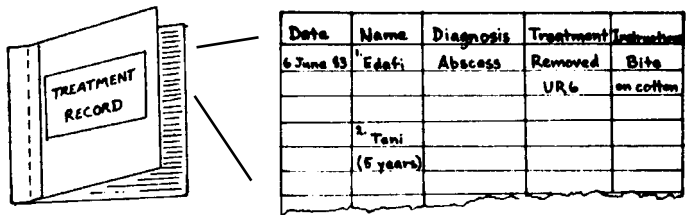 TREATMENT
RECORD
Date Name Diagnosis Treatment Instructions
6 June 83 1. Edafi Abscess Removed Bite
UR6 on cotton
2. Temi
(5 years)